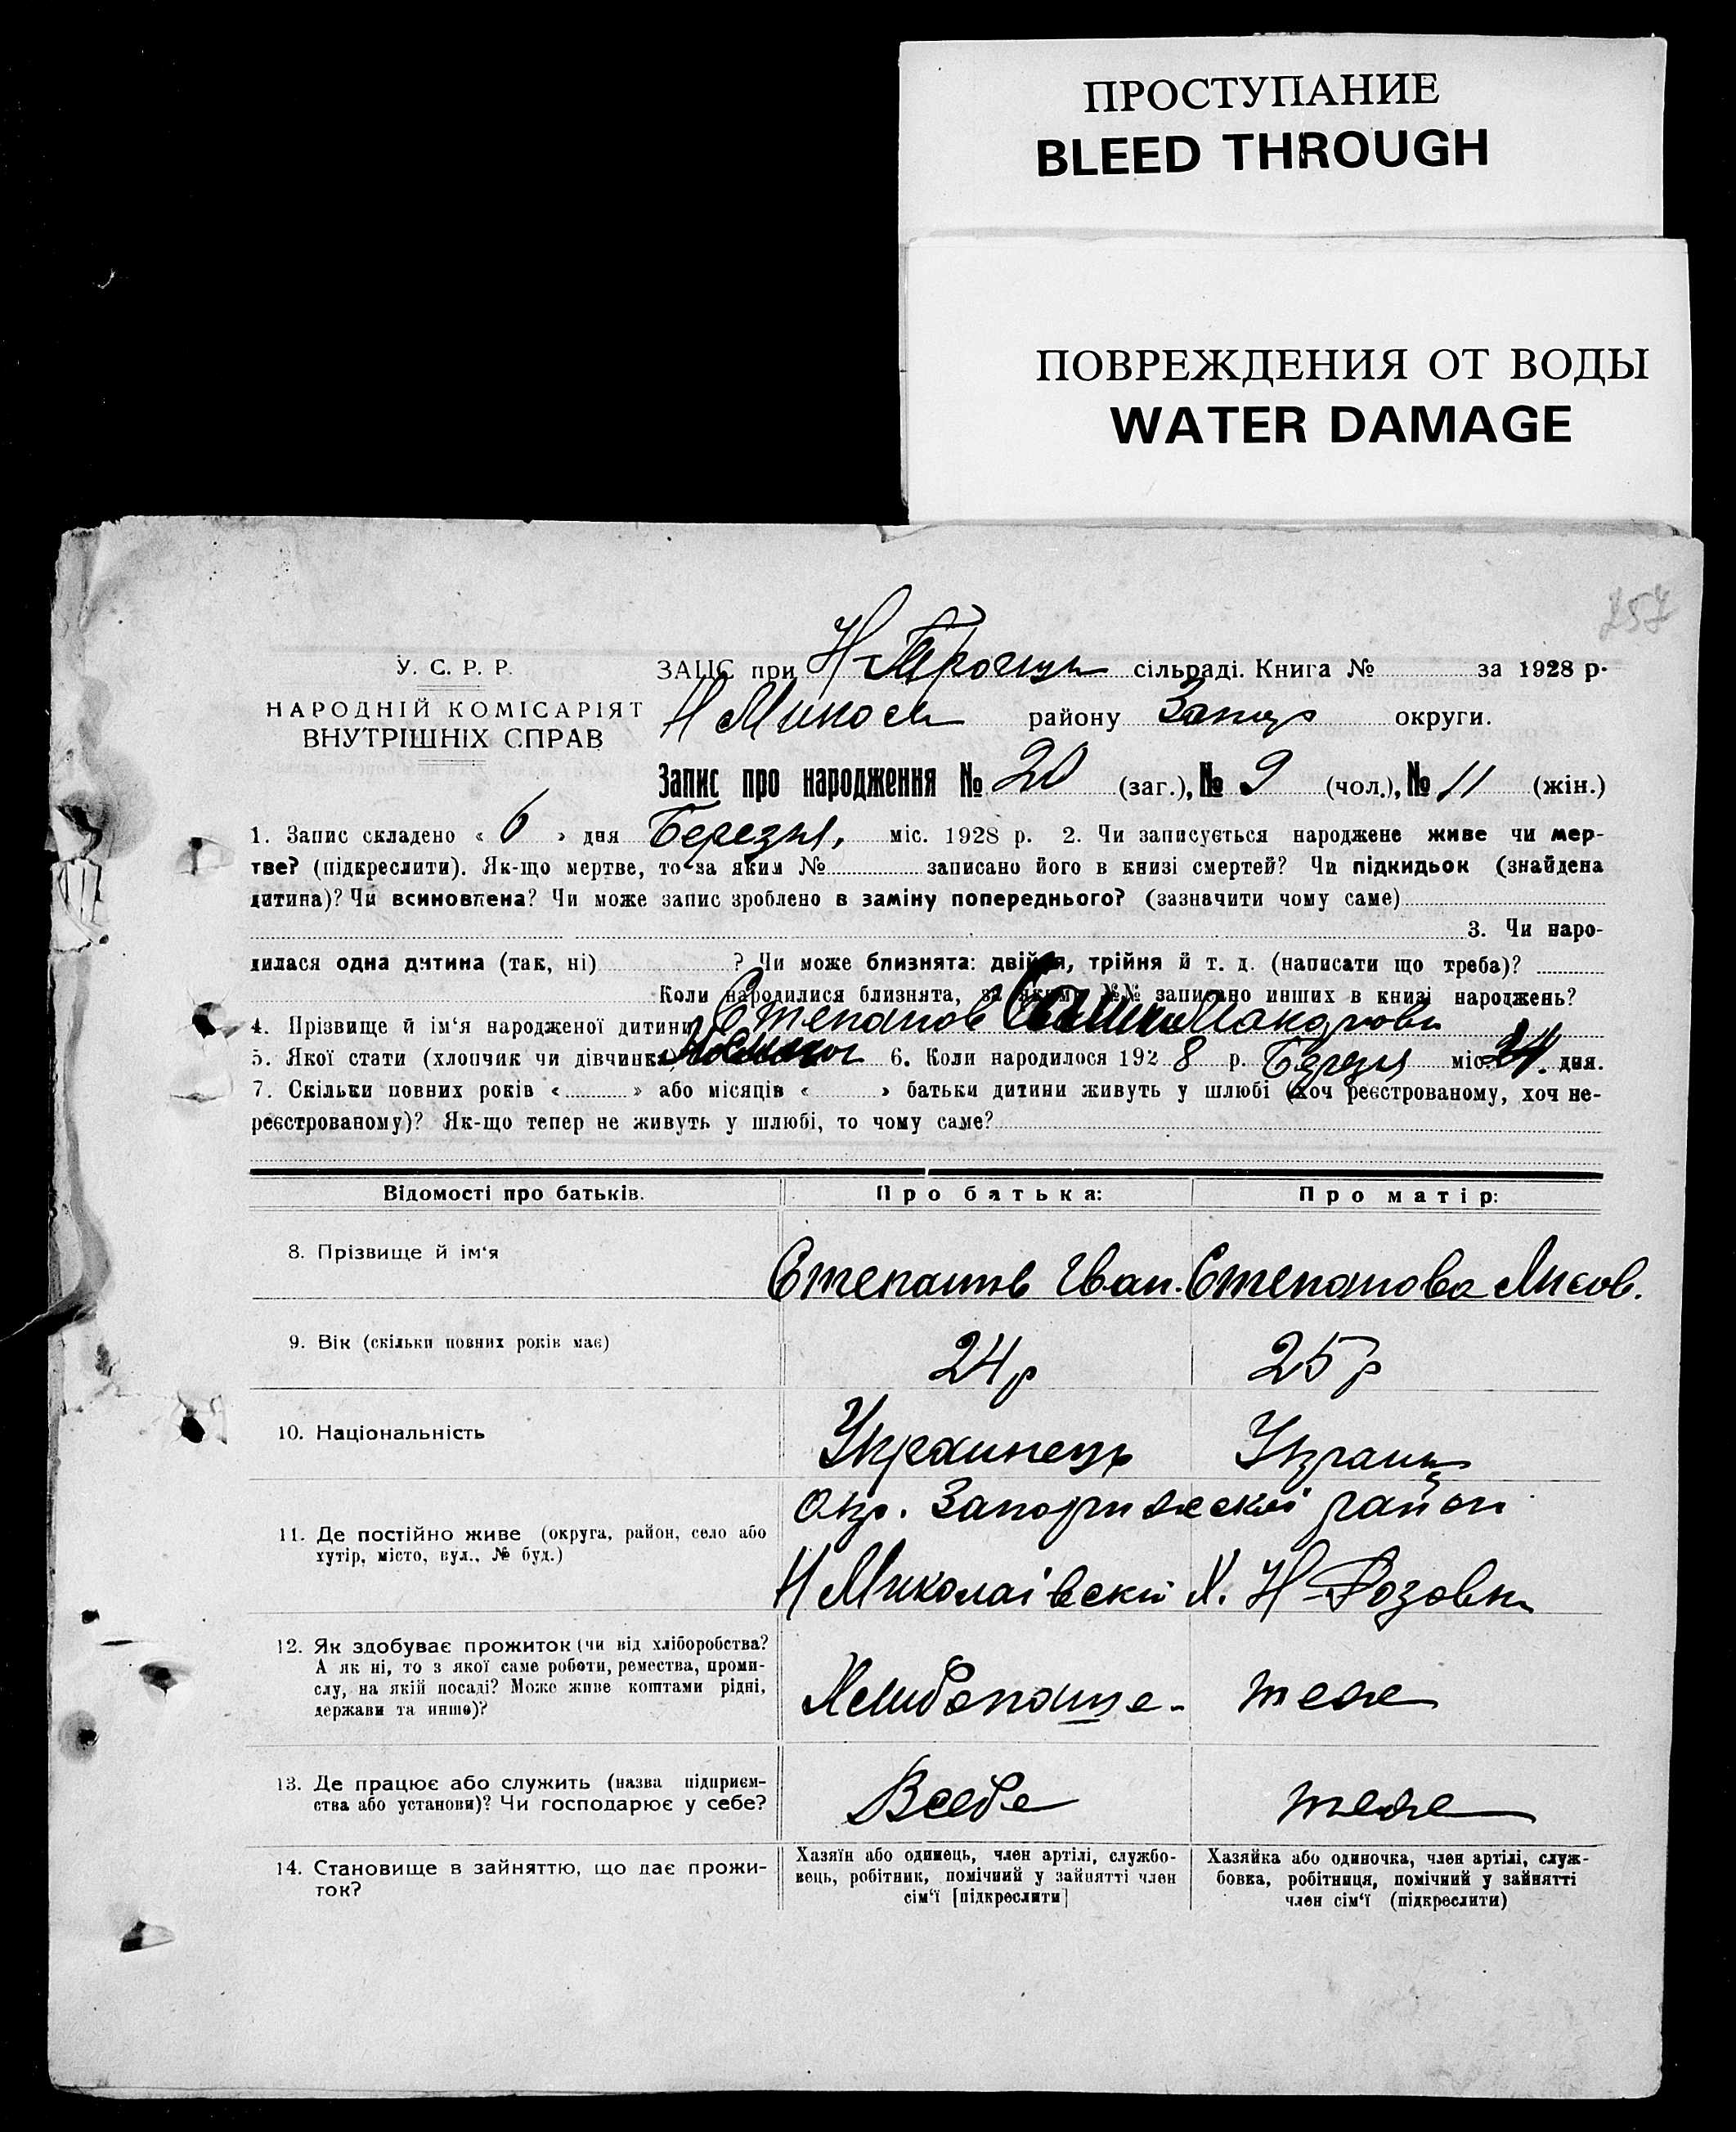 ПРОСТУПАНИЕ
BLEED THROUGH
ПОВРЕЖДЕНИЯ ОТ ВОДЫ
WATER DAMAGE
257
У. С. Р. Р.
НАРОДНІЙ КОМІСАРІЯТ
ВНУТРІШНІХ СПРАВ
ЗАЦС при Н-Троицк сільраді. Книга № за 1928 р.
Н Микол району Запор округи.
Запис про народження № 20 (заг.), № 9 (чол.), № 11 (жін.)
1. Запис складено « 6 » дня Березня, міс. 1928 р. 2. Чи записується народжене живе чи мер-
тве? (підкреслити). Як-що мертве, то за яким № записано його в книзі смертей? Чи підкидьок (знайдена
дитина)? Чи всиновлена? Чи може запис зроблено в заміну попереднього? (зазначити чому саме)
3. Чи наро-
дилася одна дитина (так, ні) ? Чи може близнята: двійня, трійня й т. д. (написати що треба)?
Коли народилися близнята, за якими №№ записано инших в книзі народжень?
4. Прізвище й ім‘я народженої дитини Степанов
5. Якої стати (хлопчик чи дівчинка) 6. Коли народилося 1928 р. Березня міс. дня.
7. Скільки повних років « » або місяців « » батьки дитини живуть у шлюбі (хоч реєстрованому, хоч не-
реєстрованому)? Як-що тепер не живуть у шлюбі, то чому саме?
Відомості про батьків. Про батька: Про матір:
8. Прізвище й ім‘я Степанов Іван. Степанова
9. Вік (скільки повних років має) 24 р 25 р
10. Національність Украинець Украин
11. Де постійно живе (округа, район, село або
хутір, місто, вул., № буд.)
окр. Запорижской район
Н Миколаівский Х. Н-Розовка
12. Як здобуває прожиток (чи від хліборобства?
А як ні, то з якої саме роботи, ремества, проми-
слу, на якій посаді? Може живе коштами рідні,
держави та инше)?
Хлибопаше- теже
13. Де працює або служить (назва підприєм-
ства або установи)? Чи господарює у себе?
Всебе теже
14. Становище в зайняттю, що дає прожи-
ток?
Хазяїн або одинець, член артілі, службо-
вець, робітник, помічний у зайнятті член
сім‘ї [підкреслити]
Хазяйка або одиночка, член артілі, служ-
бовка, робітниця, помічний у зайнятті
член сім‘ї (підкреслити)